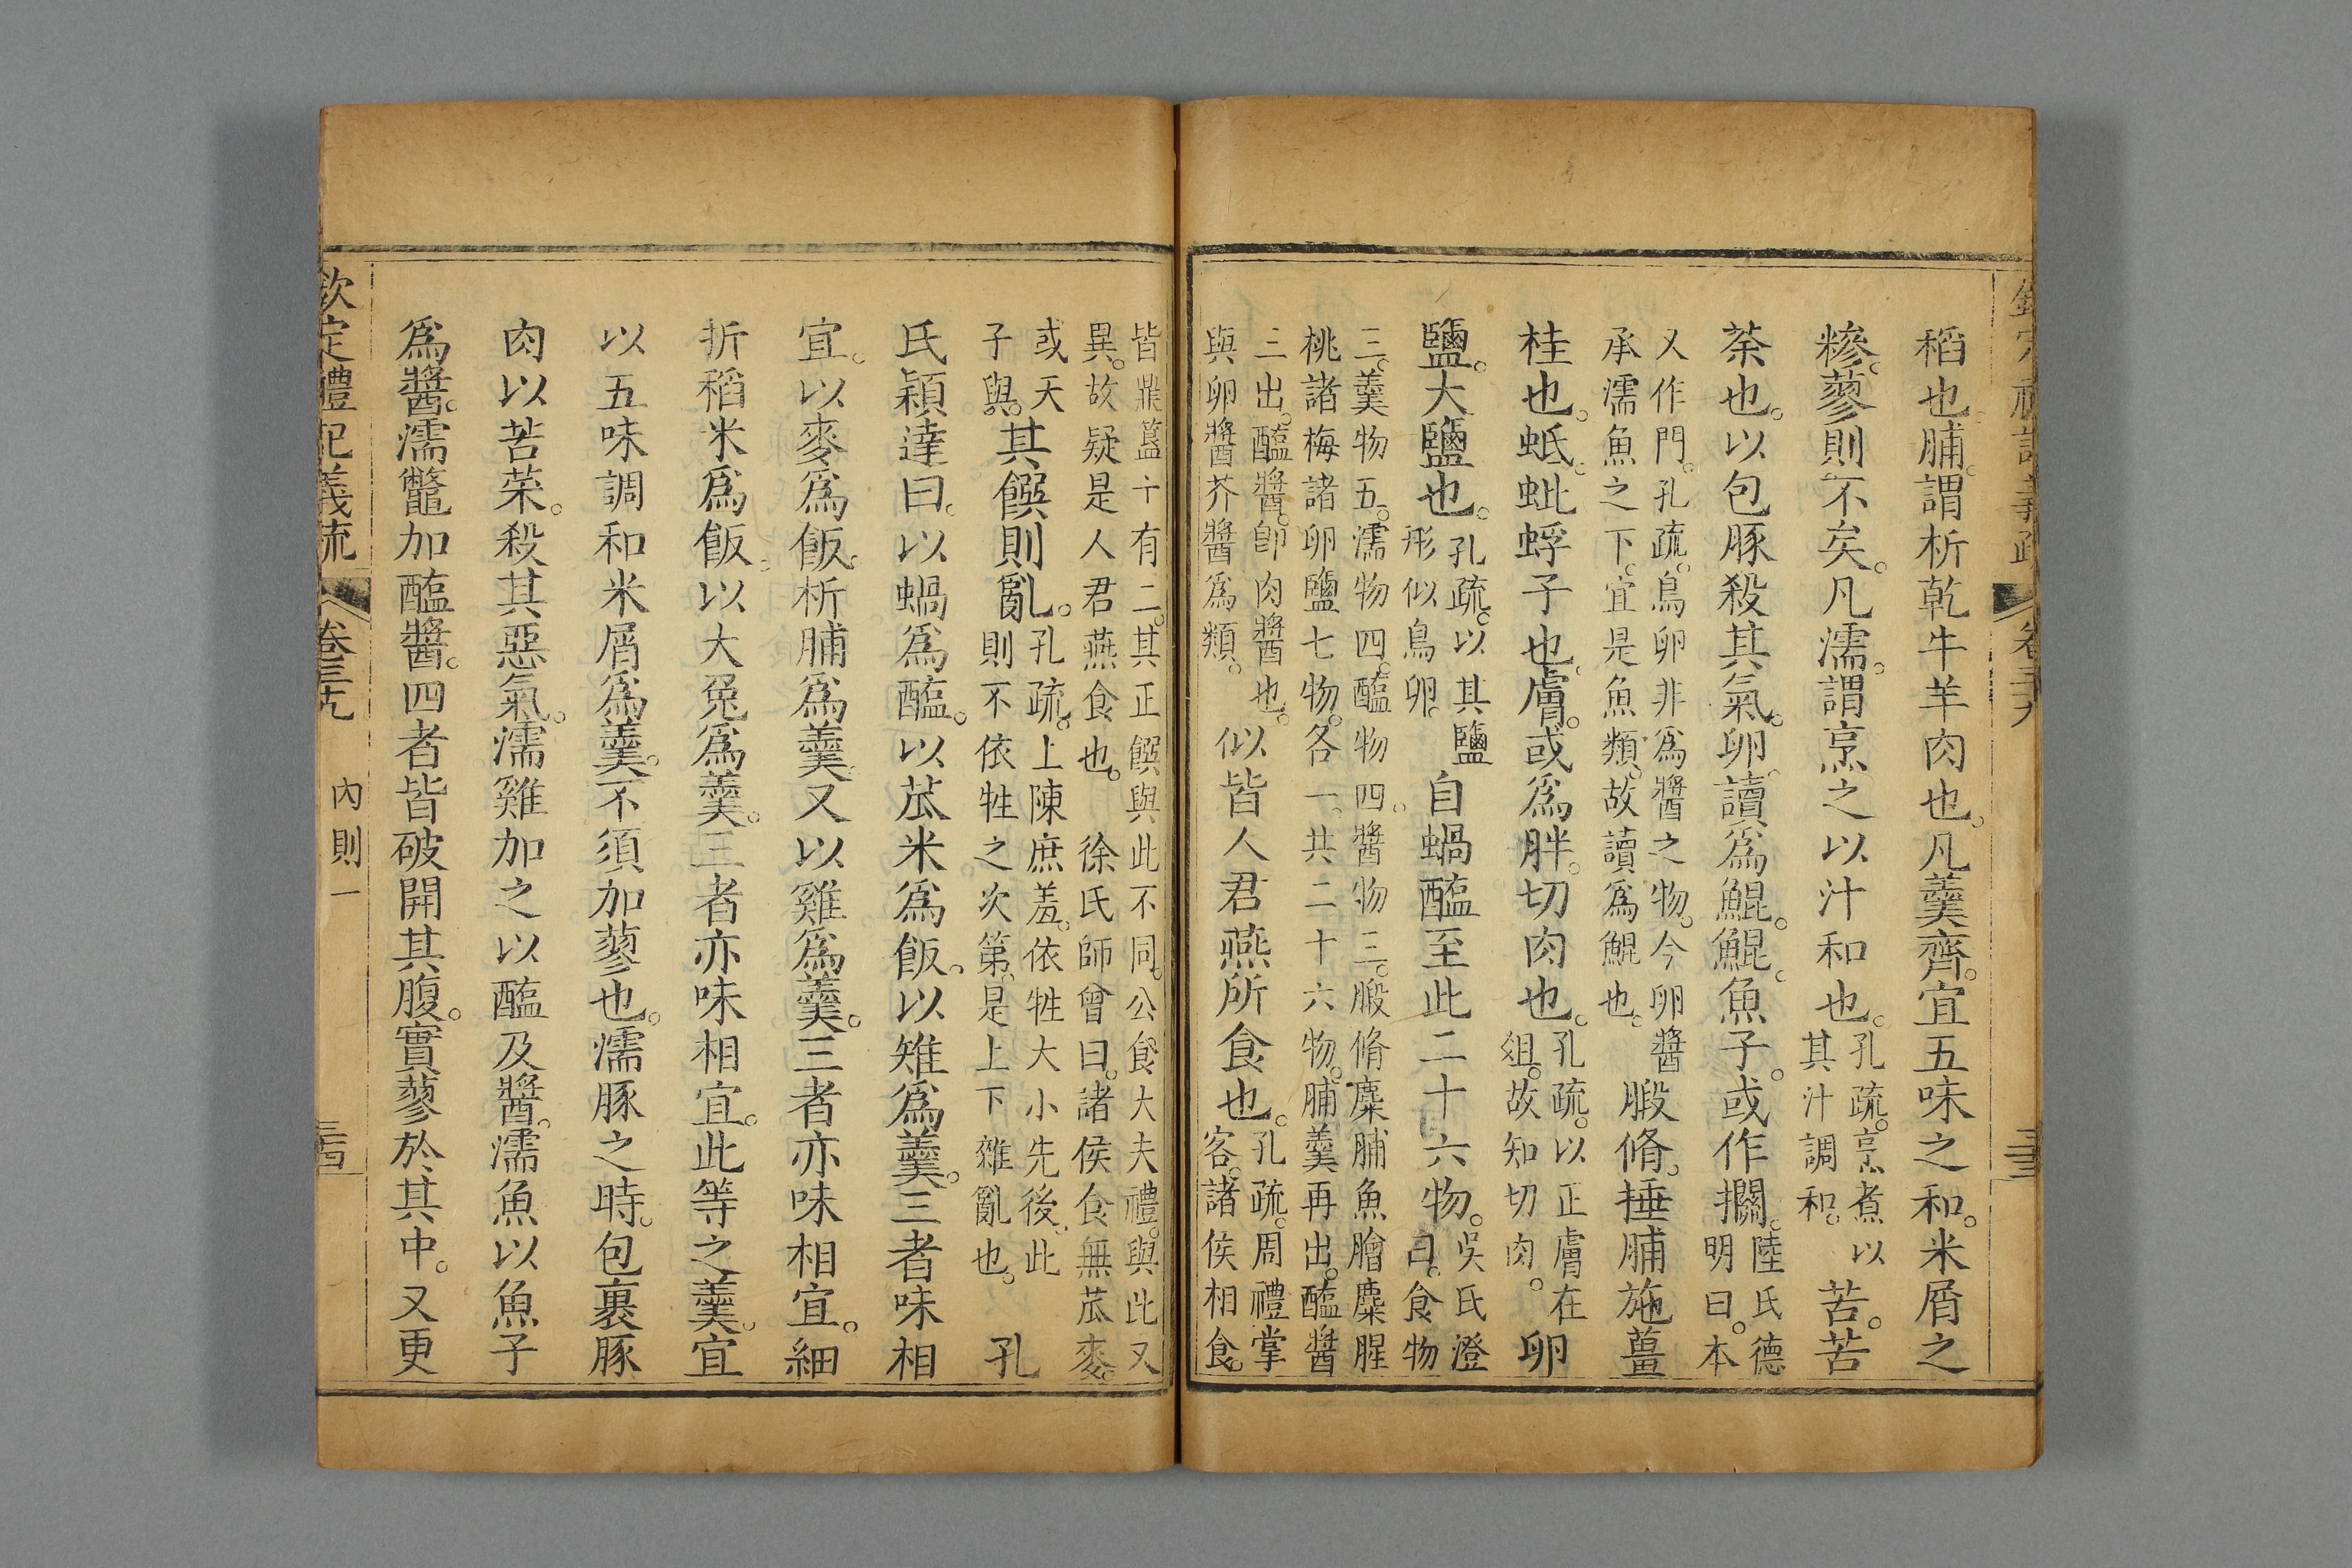 稻也。脯。謂析乾牛羊肉也。凡羹齊。宜五味之和。米屑之
糝。蓼則不矣。凡濡。謂烹之以汁和也。孔疏。烹煮以其汁調和。苦。苦
荼也。以包豚殺其氣。卵。讀爲鯤。鯤。魚子。或作攔。陸氏德明曰。本
又作門。孔疏。鳥卵非爲醬之物。今卵醬承濡魚之下。宜是魚類。故讀爲鯤也。腶脩。捶脯施薑
桂也。蚳。蚍蜉子也。膚。或爲胖。切肉也。孔疏。以正膚在俎。故知切肉。卵
鹽。大鹽也。孔疏。以其鹽形似鳥卵。自蝸醢至此二十六物。吳氏澄曰。食物
三。羹物五。濡物四。醢物四。醬物三。腶脩麋脯魚膾麋腥
桃諸梅諸卵鹽七物。各一。共二十六物。脯羹再出。醢醬
三出。醢醬。卽肉醬也。與卵醬芥醬爲類。似皆人君燕所食也。孔疏。周禮掌客。諸侯相食。
皆鼎簋十有二。其正饌與此不同。公食大夫禮。與此又
異。故疑是人君燕食也。徐氏師曾曰。諸侯食無苽麥。
或天子與。其饌則亂。孔疏。上陳庶羞。依牲大小先後。此則不依牲之次第。是上下雜亂也。孔
氏穎達曰。以蝸爲醢。以苽米爲飯。以雉爲羹。三者味相
宜。以麥爲飯。析脯爲羹。又以雞爲羹。三者亦味相宜。細
折稻米爲飯。以大兔爲羹。三者亦味相宜。此等之羹。宜
以五味調和米屑爲羹。不須加蓼也。濡豚之時。包裹豚
肉以苦菜。殺其惡氣。濡雞加之以醢及醬。濡魚以魚子
爲醬。濡鼈加醢醬。四者皆破開其腹。實蓼於其中。又更
欽定禮記義疏 卷三十九 內則一